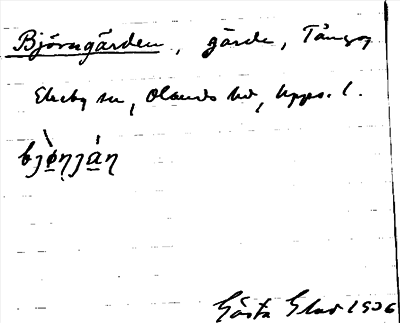 Björngården, gärde, Tångby
Ekeby sn, Olands hd, Upps. l.
bjø̀ṇjáṇ
Gösta Glad 1926